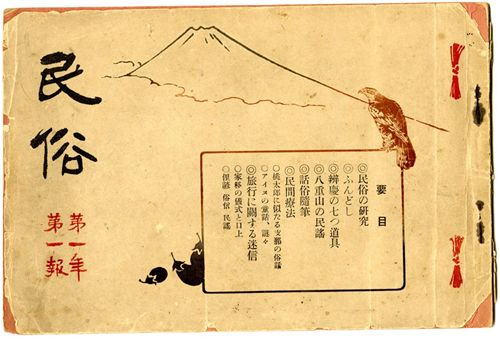 民俗
第一年
第一報
要目
◎民俗の研究
◎ふんどし
◎辨慶の七つ道具
◎八重山の民謠
◎話俗隨筆
◎民間療法
○桃太郎に似たる支那の俗謠
○アイヌの童話、謎々
◎旅行に關する迷信
○家移の儀式と口上
○俚諺 俗信 民謠